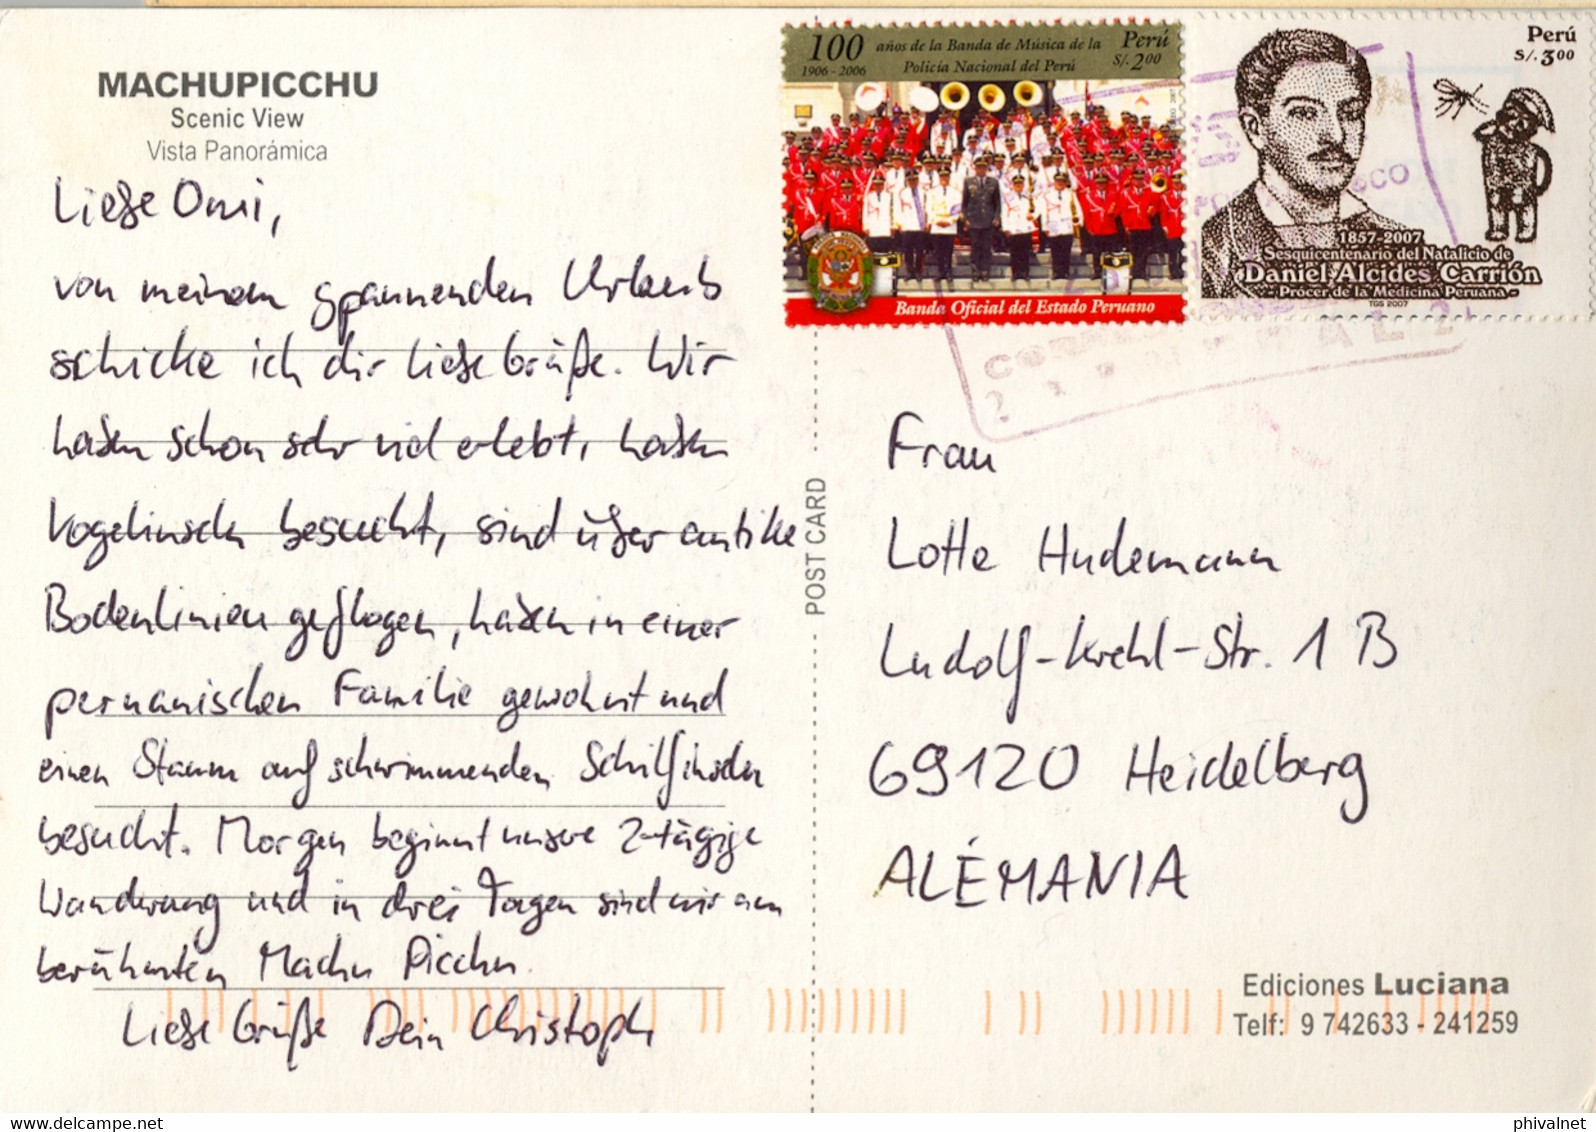 MACHUPICCHU
Scenic View
Vista Panorámica
Liebe Omi,
von meinem spannenden Urlaub
schicke ich dir liebe Grüße. Wir
haben schon sehr viel erlebt, haben
Vogelinseln besucht, sind über antike
Bodenlinien geflogen, haben in einer
peruanischen Familie gewohnt und
einen Stamm auf schwimmenden Schilfinseln
besucht. Morgen beginnt unsere 2-tägige
Wanderung und in drei Tagen sind wir am
berühmten Machu Picchu.
Liebe Grüße Dein Christoph
POST CARD
100 años de la Banda de Música de la Perú
1906 - 2006 Policía Nacional del Perú S/. 2.00
Banda Oficial del Estado Peruano
Perú
S/. 3.00
1857-2007
Sesquicentenario del Natalicio de
Daniel Alcides Carrión
- Prócer de la Medicina Peruana -
TGS 2007
Frau
Lotte Hudemann
Ludolf-Krehl-Str. 1 B
69120 Heidelberg
ALÉMANIA
Ediciones Luciana
Telf: 9 742633 - 241259
www.delcampe.net
phivalnet